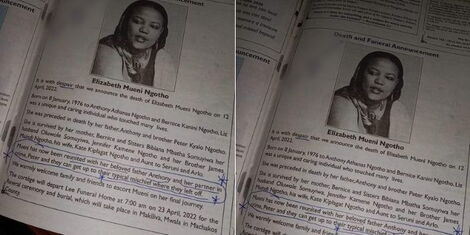 ouncement
Elizabeth Mueni Ngotho
It is with despair that we announce the death of Elizabeth Mueni Ngotho on 12
April, 2022.
Born on 8 January, 1976 to Anthony Athanas Ngotho and Bernice Kanini Ngotho, Liz
was a unique and caring individual who touched many lives.
She was preceded in death by her father, Anthony and brother Peter Kyalo Ngotho.
She is survived by her mother, Bernice and Sisters Bibiana Mbatha Somoynva her
husband Oluwole Somoynva, Jennifer Kamene Ngotho and her Brother James
Mutid Ngotho, his wife, Kate Kiphigat Ngotho and Aunt to Seruni and Arlo.
Mueni has now been reunited with her beloved father Anthony and her partner in
crime, Peter and they can get up to their typical mischief where they left off.
We warmly welcome family and friends to escort Mueni on her final journey.
The cortege will depart Lee Funeral Home at 7:00 am on 23 April, 2022 for the
funeral ceremony and burial, which will take place in Makiliva, Mwala in Machakos
Death and Funeral Announcement
Elizabeth Mueni Ngotho
It is with despair that we announce the death of Elizabeth Mueni Ngotho on 12
April, 2022.
Born on 8 January, 1976 to Anthony Athanas Ngotho and Bernice Kanini Ngotho, Liz
was a unique and caring individual who touched many lives.
She was preceded in death by her father, Anthony and brother Peter Kyalo Ngotho.
She is survived by her mother, Bernice and Sisters Bibiana Mbatha Somoynva her
husband Oluwole Somoynva, Jennifer Kamene Ngotho and her Brother James
Mutid Ngotho, his wife, Kate Kiphigat Ngotho and Aunt to Seruni and Arlo.
Mueni has now been reunited with her beloved father Anthony and her partner in
crime, Peter and they can get up to their typical mischief where they left off.
We warmly welcome family and friends to escort Mueni on her final journey.